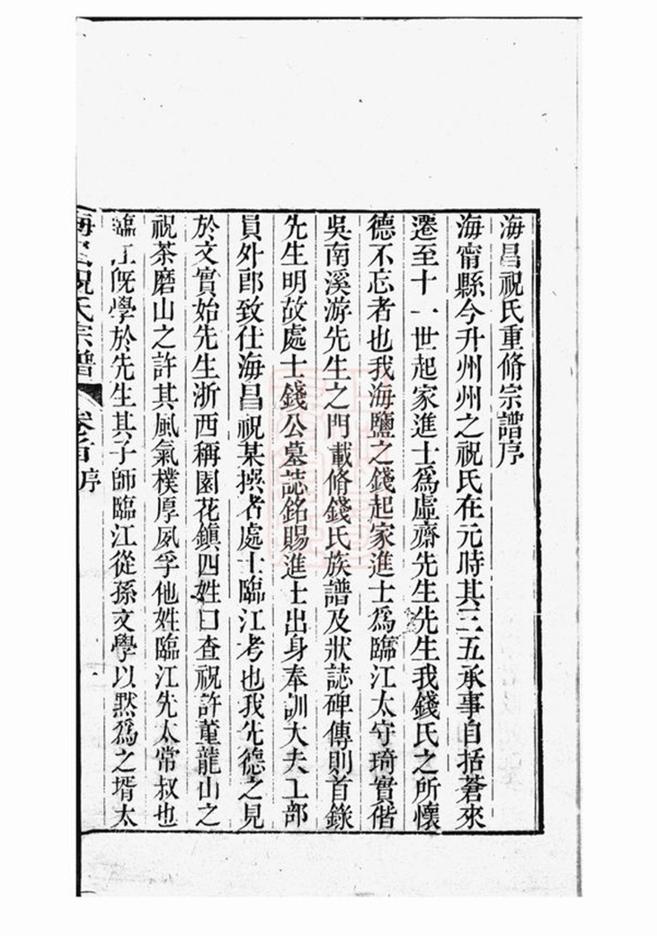 海昌祝氏重脩宗譜序
海甯縣今升州州之祝氏在元時其三五承事自括蒼來
遷至十一世起家進士為虛齋先生先生我錢氏之所懷
德不忘者也我海鹽之錢起家進士為臨江太守琦實偕
吳南溪游先生之門載脩錢氏族譜及狀誌碑傳則首錄
先生明故處士錢公墓誌銘賜進士出身奉訓大夫工部
員外郎致仕海昌祝某撰者處士臨江考也我先德之見
於文實始先生浙西稱園花鎮四姓曰查祝許董龍山之
祝茶磨山之許其風氣樸厚夙孚他姓臨江先太常叔也
臨江旣學於先生其子師臨江從孫文學以黙為之壻太
海昌祝氏宗譜
卷之首
序
一